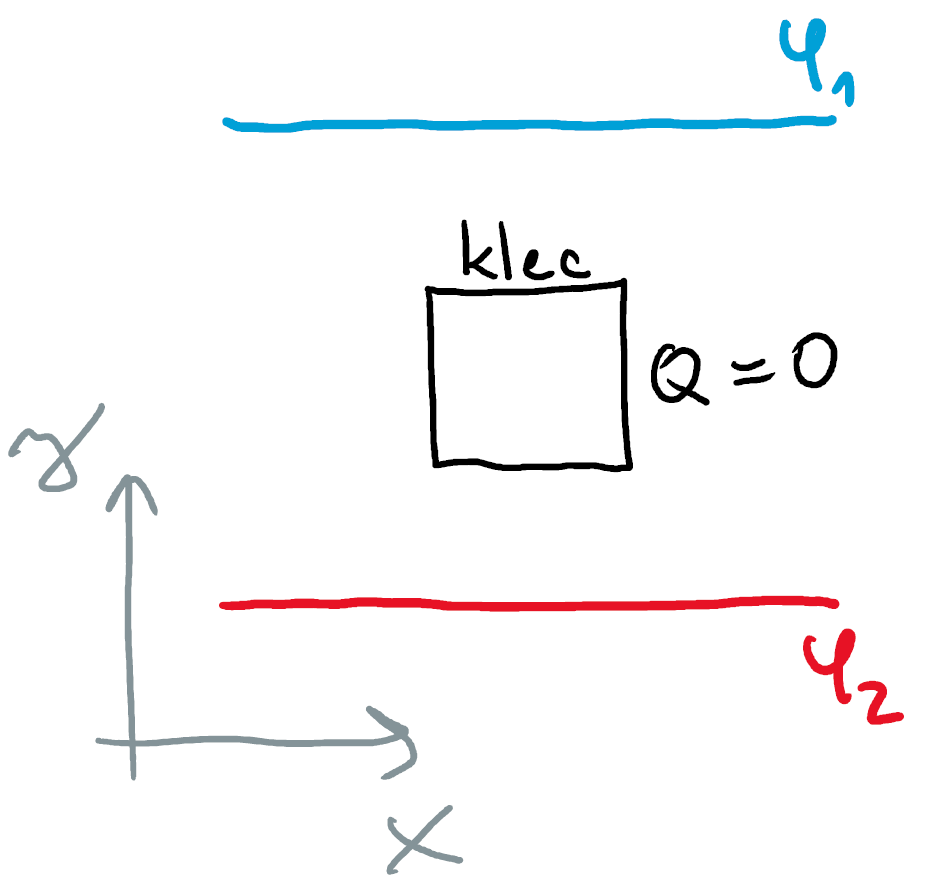 φ₁
klec
Q = 0
y
φ₂
x